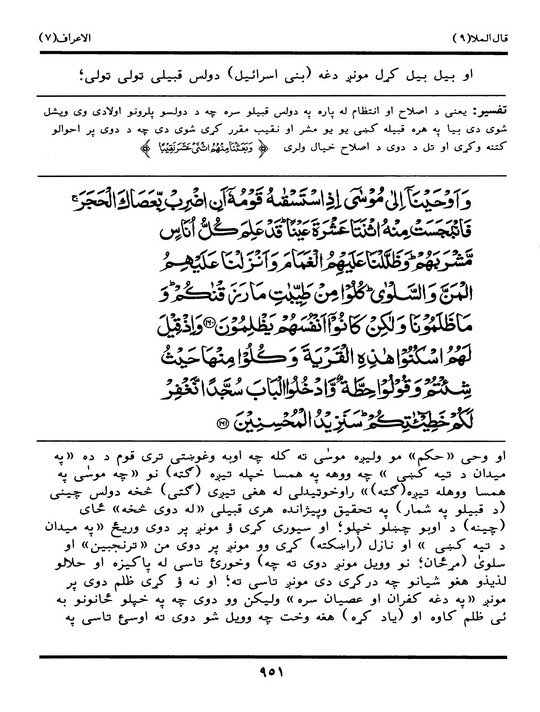 قال الملا (٩) الاعراف (٧)
او بیل بیل کړل مونږ دغه (بنی اسرائیل) دولس قبیلی ټولی ټولی؛
تفسیر: یعنی د اصلاح او انتظام له پاره په دولس قبیلو سره چه د دولسو پلرونو اولادی وی ویشل
شوی دی بیا په هره قبیله کښی یو یو مشر او نقیب مقرر کړی شوی دی چه د دوی پر احوالو
کتنه وکړی او تل د دوی د اصلاح خیال ولری ﴿ وَبَعَثْنَا مِنْهُمُ اثْنَیْ عَشَرَ نَقِیْبًا ﴾
وَاَوْحَیْنَاۤ اِلٰی مُوْسٰۤی اِذِ اسْتَسْقٰىهُ قَوْمُهٗۤ اَنِ اضْرِبْ بِّعَصَاكَ الْحَجَرَ ۚ
فَانْۢبَجَسَتْ مِنْهُ اثْنَتَا عَشْرَةَ عَیْنًا ؕ قَدْ عَلِمَ كُلُّ اُنَاسٍ
مَّشْرَبَهُمْ ؕ وَظَلَّلْنَا عَلَیْهِمُ الْغَمَامَ وَاَنْزَلْنَا عَلَیْهِمُ
الْمَنَّ وَالسَّلْوٰی ؕ كُلُوْا مِنْ طَیِّبٰتِ مَا رَزَقْنٰكُمْ ؕ وَ
مَا ظَلَمُوْنَا وَلٰكِنْ كَانُوْۤا اَنْفُسَهُمْ یَظْلِمُوْنَ ﴿۱۶۰﴾ وَاِذْ قِیْلَ
لَهُمُ اسْكُنُوْا هٰذِهِ الْقَرْیَةَ وَكُلُوْا مِنْهَا حَیْثُ
شِئْتُمْ وَقُوْلُوْا حِطَّةٌ وَّادْخُلُوا الْبَابَ سُجَّدًا نَّغْفِرْ
لَكُمْ خَطِیْٓـٰٔتِكُمْ ؕ سَنَزِیْدُ الْمُحْسِنِیْنَ ﴿۱۶۱﴾
او وحی «حکم» مو ولیږه موسٰی ته کله چه اوبه وغوښتی تری قوم د ده «په
میدان د تیه کښی» چه ووهه په همسا خپله تیږه (ګټه) نو «چه موسٰی په
همسا ووهله تیږه (ګټه)» راوخوټیدلی له هغی تیږی (ګټی) څخه دولس چینی
(د قبیلو په شمار) په تحقیق وپیژانده هری قبیلی «له دوی څخه» ځای
(چینه) د اوبو چښلو خپلو؛ او سیوری کړی ؤ مونږ پر دوی وریځ «په میدان
د تیه کښی» او نازل (راښکته) کړی وو مونږ پر دوی من «ترنجبین» او
سلوٰی (مړځان؛ نو وویل مونږ دوی ته چه) وخورئ تاسی له پاکیزه او حلالو
لذیذو هغو شیانو چه درکړی دی مونږ تاسی ته؛ او نه ؤ کړی ظلم دوی پر
مونږ «په دغه کفران او عصیان سره» ولیکن وو دوی چه په خپلو ځانونو به
ئی ظلم کاوه او (یاد کړه) هغه وخت چه وویل شو دوی ته اوسئ تاسی په
٩٥١